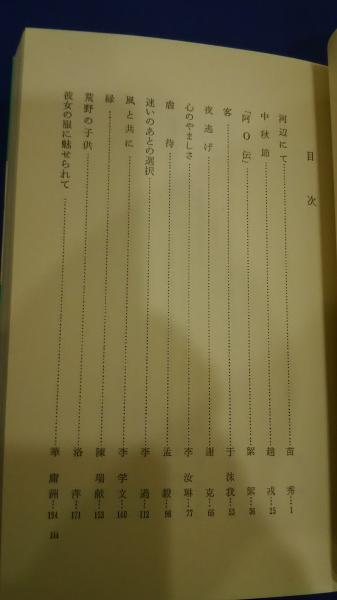 目次
河辺にて……苗秀…1
中秋節……趙戎…25
「阿O伝」……絮絮…36
客……于沫我…53
夜逃げ……謝克…65
心のやましさ……李汝琳…77
虐待……孟毅…98
迷いのあとの選択……李過…112
風と共に……李学文…140
縁……陳瑞献…153
荒野の子供……洛萍…171
彼女の服に魅せられて……華庸洲…194
iii